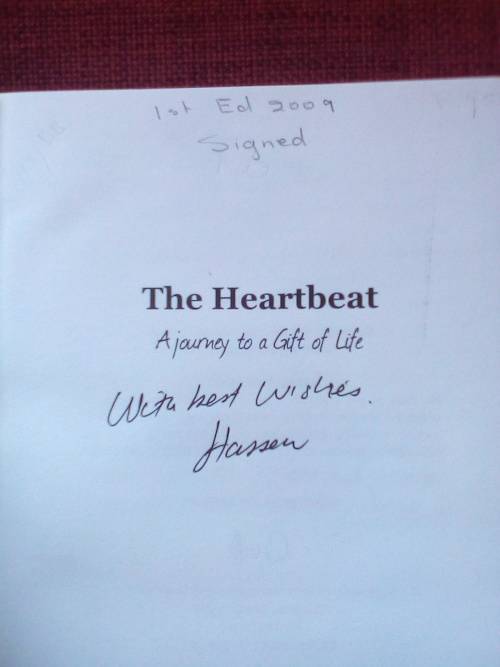 1st Ed 2009
Signed
The Heartbeat
A journey to a Gift of Life
With best Wishes.
Hassen